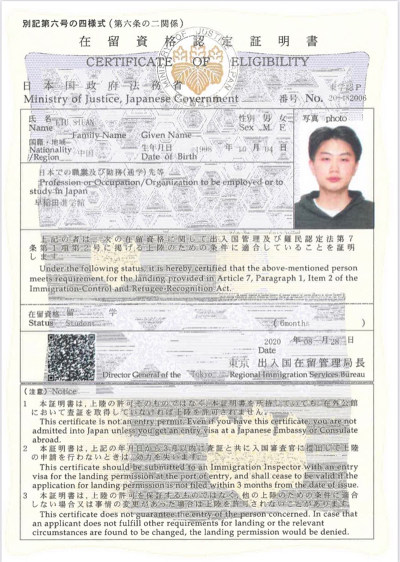 別記第六号の四様式（第六条の二関係）
在留資格認定証明書
CERTIFICATE OF ELIGIBILITY
日本国政府法務省
Ministry of Justice, Japanese Government
番号 No.
氏名
Name
Family Name Given Name
性別 男 女
Sex M. F.
写真 photo
国籍・地域
Nationality
/Region
中国
生年月日
Date of Birth
日本での職業及び勤務(通学)先等
Profession or Occupation/Organization to be employed or to
study in Japan
上記の者は、次の在留資格に関して出入国管理及び難民認定法第7
条第1項第2号に掲げる上陸のための条件に適合していることを証明
します。
Under the following status, it is hereby certified that the above-mentioned person
meets requirement for the landing provided in Article 7, Paragraph 1, Item 2 of the
Immigration Control and Refugee-Recognition Act.
在留資格 留学
Status Student
( 6months )
2020 年
Date
東京 出入国在留管理局長
Director General of the Tokyo Regional Immigration Services Bureau
(注意) Notice
1 本証明書は、上陸の許可そのものではなく、本証明書を所持していても、在外公館
において査証を取得していなければ上陸を許可されません。
This certificate is not an entry permit. Even if you have this certificate, you are not
admitted into Japan unless you get an entry visa at a Japanese Embassy or Consulate
abroad.
2 本証明書は、上記の年月日から3か月以内に査証と共に入国審査官に提出して上陸
の申請を行わないときは、効力を失います。
This certificate should be submitted to an Immigration Inspector with an entry
visa for the landing permission at the port of entry, and shall cease to be valid if the
application for landing permission is not filed within 3 months from the date of issue.
3 本証明書は、上陸の許可を保証するものではなく、他の上陸のための条件に適合
しない場合又は事情の変更があった場合は上陸を許可されないことがあります。
This certificate does not guarantee the entry of the person concerned. In case that
an applicant does not fulfill other requirements for landing or the relevant
circumstances are found to be changed, the landing permission would be denied.